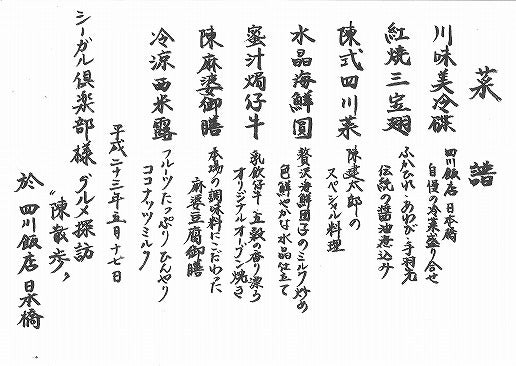 菜譜
川味美冷碟
四川飯店 日本橋
自慢の冷菜盛り合せ
紅焼三宝翅
ふかひれ・あわび・手羽先
伝統の醤油煮込み
陳式四川菜
陳建太郎の
スペシャル料理
水晶海鮮圓
贅沢海鮮団子のミルク炒め
色鮮やかな水晶仕立て
蜜汁焗仔牛
乳飲仔牛 五穀の香り漂う
オリジナルオーブン焼き
陳麻婆御膳
本場の調味料にこだわった
麻婆豆腐御膳
冷涼西米露
フルーツたっぷりひんやり
ココナッツミルク
平成二十三年五月十七日
シーガル倶楽部様 グルメ探訪
〝陳散歩〟
於 四川飯店 日本橋